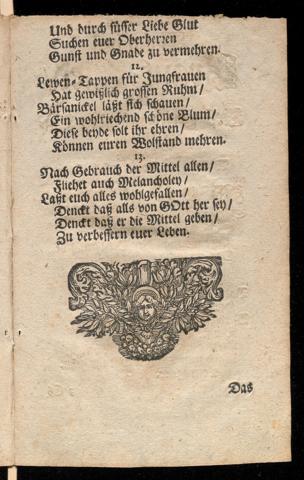 Und durch süsser Liebe Glut
Suchen euer Oberherren
Gunst und Gnade zu vermehren.
12.
Lewen-Tappen für Jungfrauen
Hat gewißlich grossen Ruhm/
Bärsanickel läßt sich schauen/
Ein wohlriechend schöne Blum/
Diese beyde solt ihr ehren/
Können euren Wolstand mehren.
13.
Nach Gebrauch der Mittel allen/
Fliehet auch Melancholey/
Laßt euch alles wohlgefallen/
Denckt daß alls von GOtt her sey/
Denckt daß er die Mittel geben/
Zu verbessern euer Leben.
Das